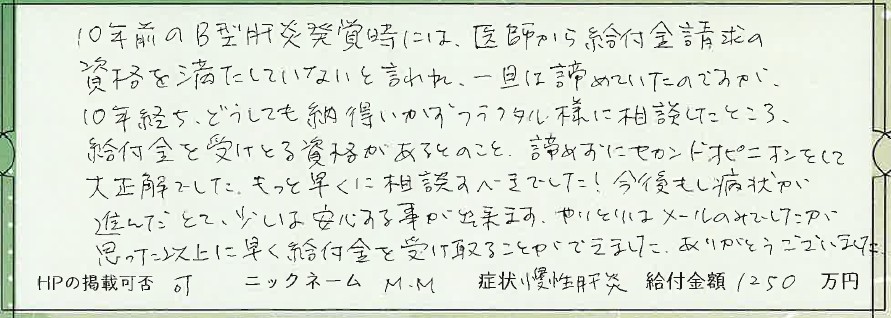 10年前のB型肝炎発覚時には、医師から給付金請求の
資格を満たしていないと言われ、一旦は諦めていたのですが、
10年経ち、どうしても納得いかずフラクタル様に相談したところ、
給付金を受けとる資格があるとのこと、諦めずにセカンドオピニオンをして
大正解でした。もっと早くに相談すべきでした！今後もし病状が
進んだとて、少しは安心する事が出来ます。やりとりはメールのみでしたが
思った以上に早く給付金を受け取ることができました。ありがとうございました。
HPの掲載可否 可 ニックネーム M.M 症状 慢性肝炎 給付金額 1250 万円